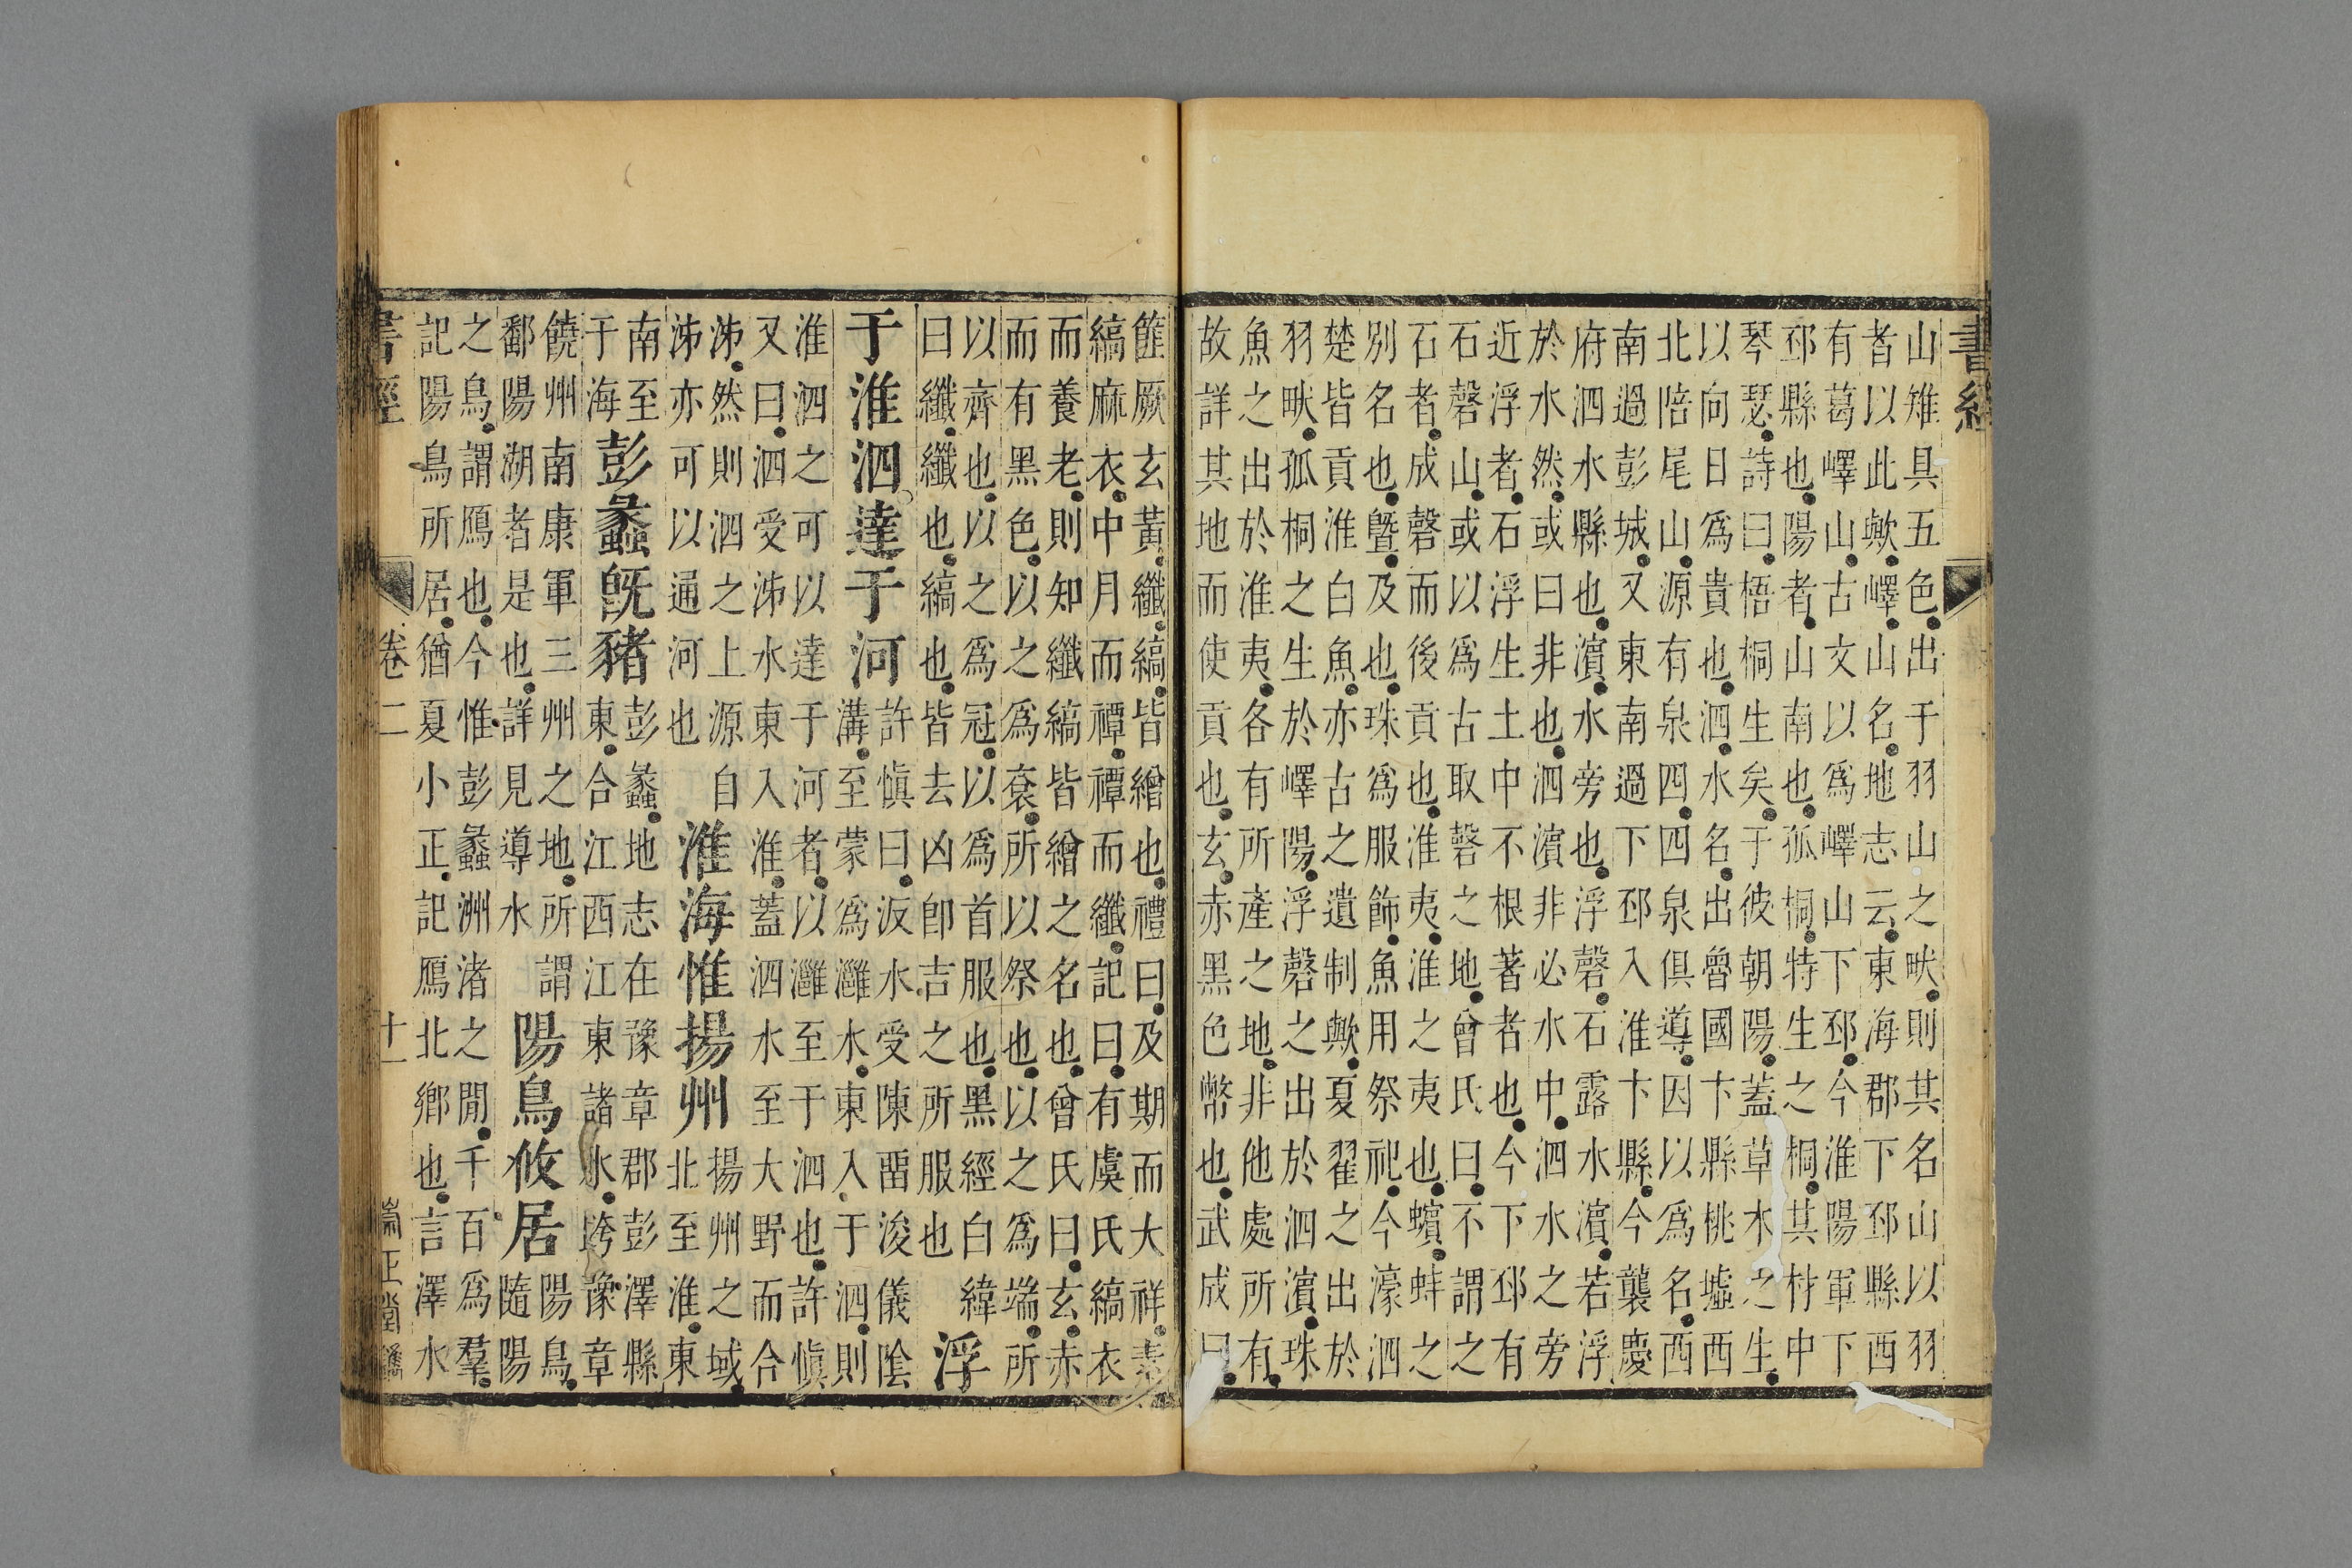 書經
山雉具五色出于羽山之畎則其名山以羽
者以此歟嶧山名地志云東海郡下邳縣西
有葛嶧山古文以爲嶧山下邳今淮陽軍下
邳縣也陽者山南也孤桐特生之桐其材中
琴瑟詩曰梧桐生矣于彼朝陽蓋草木之生
以向日爲貴也泗水名出魯國卞縣桃墟西
北陪尾山源有泉四四泉俱導因以爲名西
南過彭城又東南過下邳入淮卞縣今襲慶
府泗水縣也濱水旁也浮磬石露水濱若浮
於水然或曰非也泗濱非必水中泗水之旁
近浮者石浮生土中不根著者也今下邳有
石磬山或以爲古取磬之地曾氏曰不謂之
石者成磬而後貢也淮夷淮之夷也蠙蚌之
別名也曁及也珠爲服飾魚用祭祀今濠泗
楚皆貢淮白魚亦古之遺制歟夏翟之出於
羽畎孤桐之生於嶧陽浮磬之出於泗濱珠
魚之出於淮夷各有所產之地非他處所有
故詳其地而使貢也玄赤黑色幣也武成曰
篚厥玄黃纖縞皆繒也禮曰及期而大祥素
縞麻衣中月而禫禫而纖記曰有虞氏縞衣
而養老則知纖縞皆繒之名也曾氏曰玄赤
而有黑色以之爲衮所以祭也以之爲端所
以齊也以之爲冠以爲首服也黑經白緯
曰纖纖也縞也皆去凶卽吉之所服也 浮
于淮泗達于河 許慎曰汳水受陳留浚儀陰
溝至蒙爲灉水東入于泗則
淮泗之可以達于河者以灉至于泗也許慎
又曰泗受泲水東入淮蓋泗水至大野而合
泲然則泗之上源自
泲亦可以通河也 淮海惟揚州 揚州之域
北至淮東
南至
于海 彭蠡旣豬 彭蠡地志在豫章郡彭澤縣
東合江西江東諸水跨豫章
饒州南康軍三州之地所謂
鄱陽湖者是也詳見導水 陽鳥攸居 陽鳥
隨陽
之鳥謂鴈也今惟彭蠡洲渚之閒千百爲羣
記陽鳥所居猶夏小正記鴈北鄉也言澤水
書經 卷二 十一